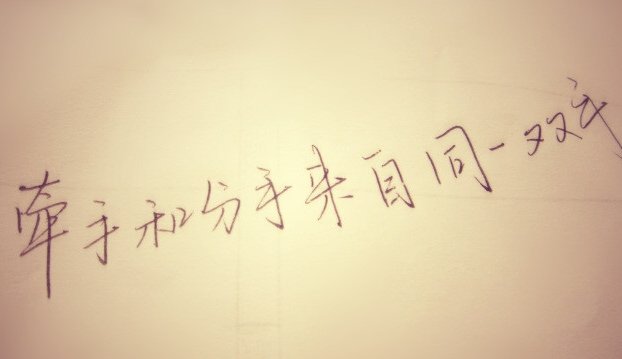 牵手和分手来自同一双手